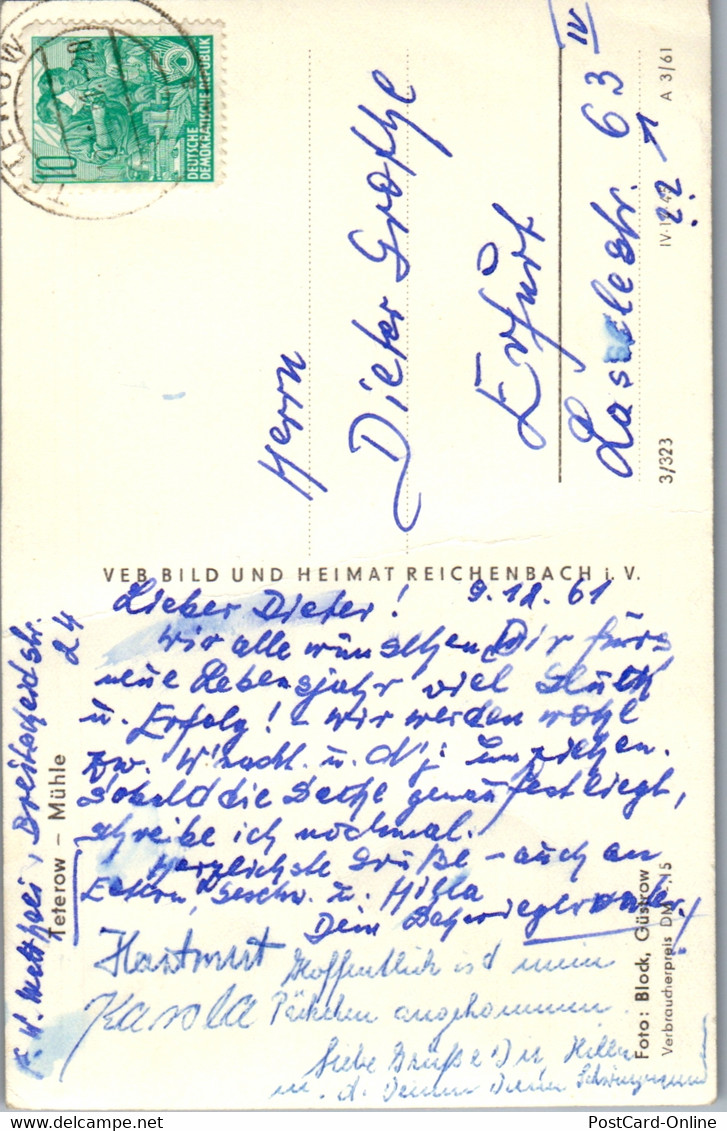 TETEROW
10
DEUTSCHE
DEMOKRATISCHE REPUBLIK
Herrn
Dieter Grothe
Erfurt
Lassallestr. 63 IV
22
3/323
A 3/61
VEB BILD UND HEIMAT REICHENBACH i. V.
Lieber Dieter! 9.12.61
Wir alle wünschen Dir fürs
neue Lebensjahr viel Glück
u. Erfolg! – Wir werden wohl
zw. W'nacht. u. N'j. umziehen.
Sobald die Sache genau festliegt,
schreibe ich nochmal.
Herzlichste Grüße – auch an
Eltern, Geschw. u. Hilla
Dein Schwiegervater.
Hartmut
Karola
Hoffentlich ist mein
Päckchen angekommen.
Liebe Grüße Dir, Hilla
u. d. Deinen Deine Schwiegermu
Teterow – Mühle
Breitscheidstr.
24
Foto: Block, Güstrow
Verbraucherpreis DM
PostCard-Online